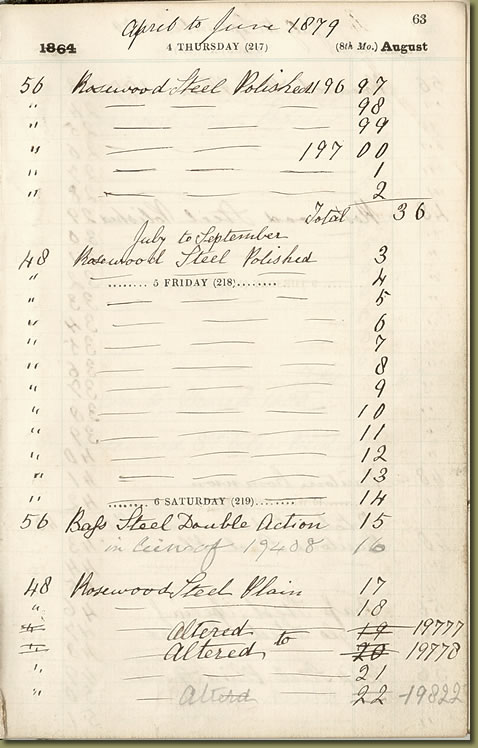 April to June 1879
63
1864 4 THURSDAY (217) (8th Mo.) August
56 Rosewood Steel Polished 196 97
" — — — 98
" — — — 99
" — — — 197 00
" — — — 1
" — — — 2
Total 36
July to September
48 Rosewood Steel Polished 3
" ........ 5 FRIDAY (218)........ 4
" — — — 5
" — — — 6
" — — — 7
" — — — 8
" — — — 9
" — — — 10
" — — — 11
" — — — 12
" — — — 13
" ........ 6 SATURDAY (219)........ 14
56 Bass Steel Double Action 15
in lieu of 19408 16
48 Rosewood Steel Plain 17
" — — — 18
" Altered 19 19777
" Altered to 20 19778
" — — — 21
" Alterd 22 -19822